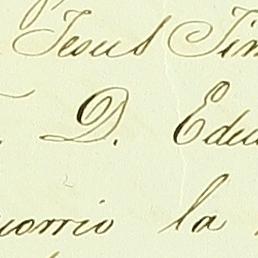 Jesus Tim
D. Edu
uorrio la